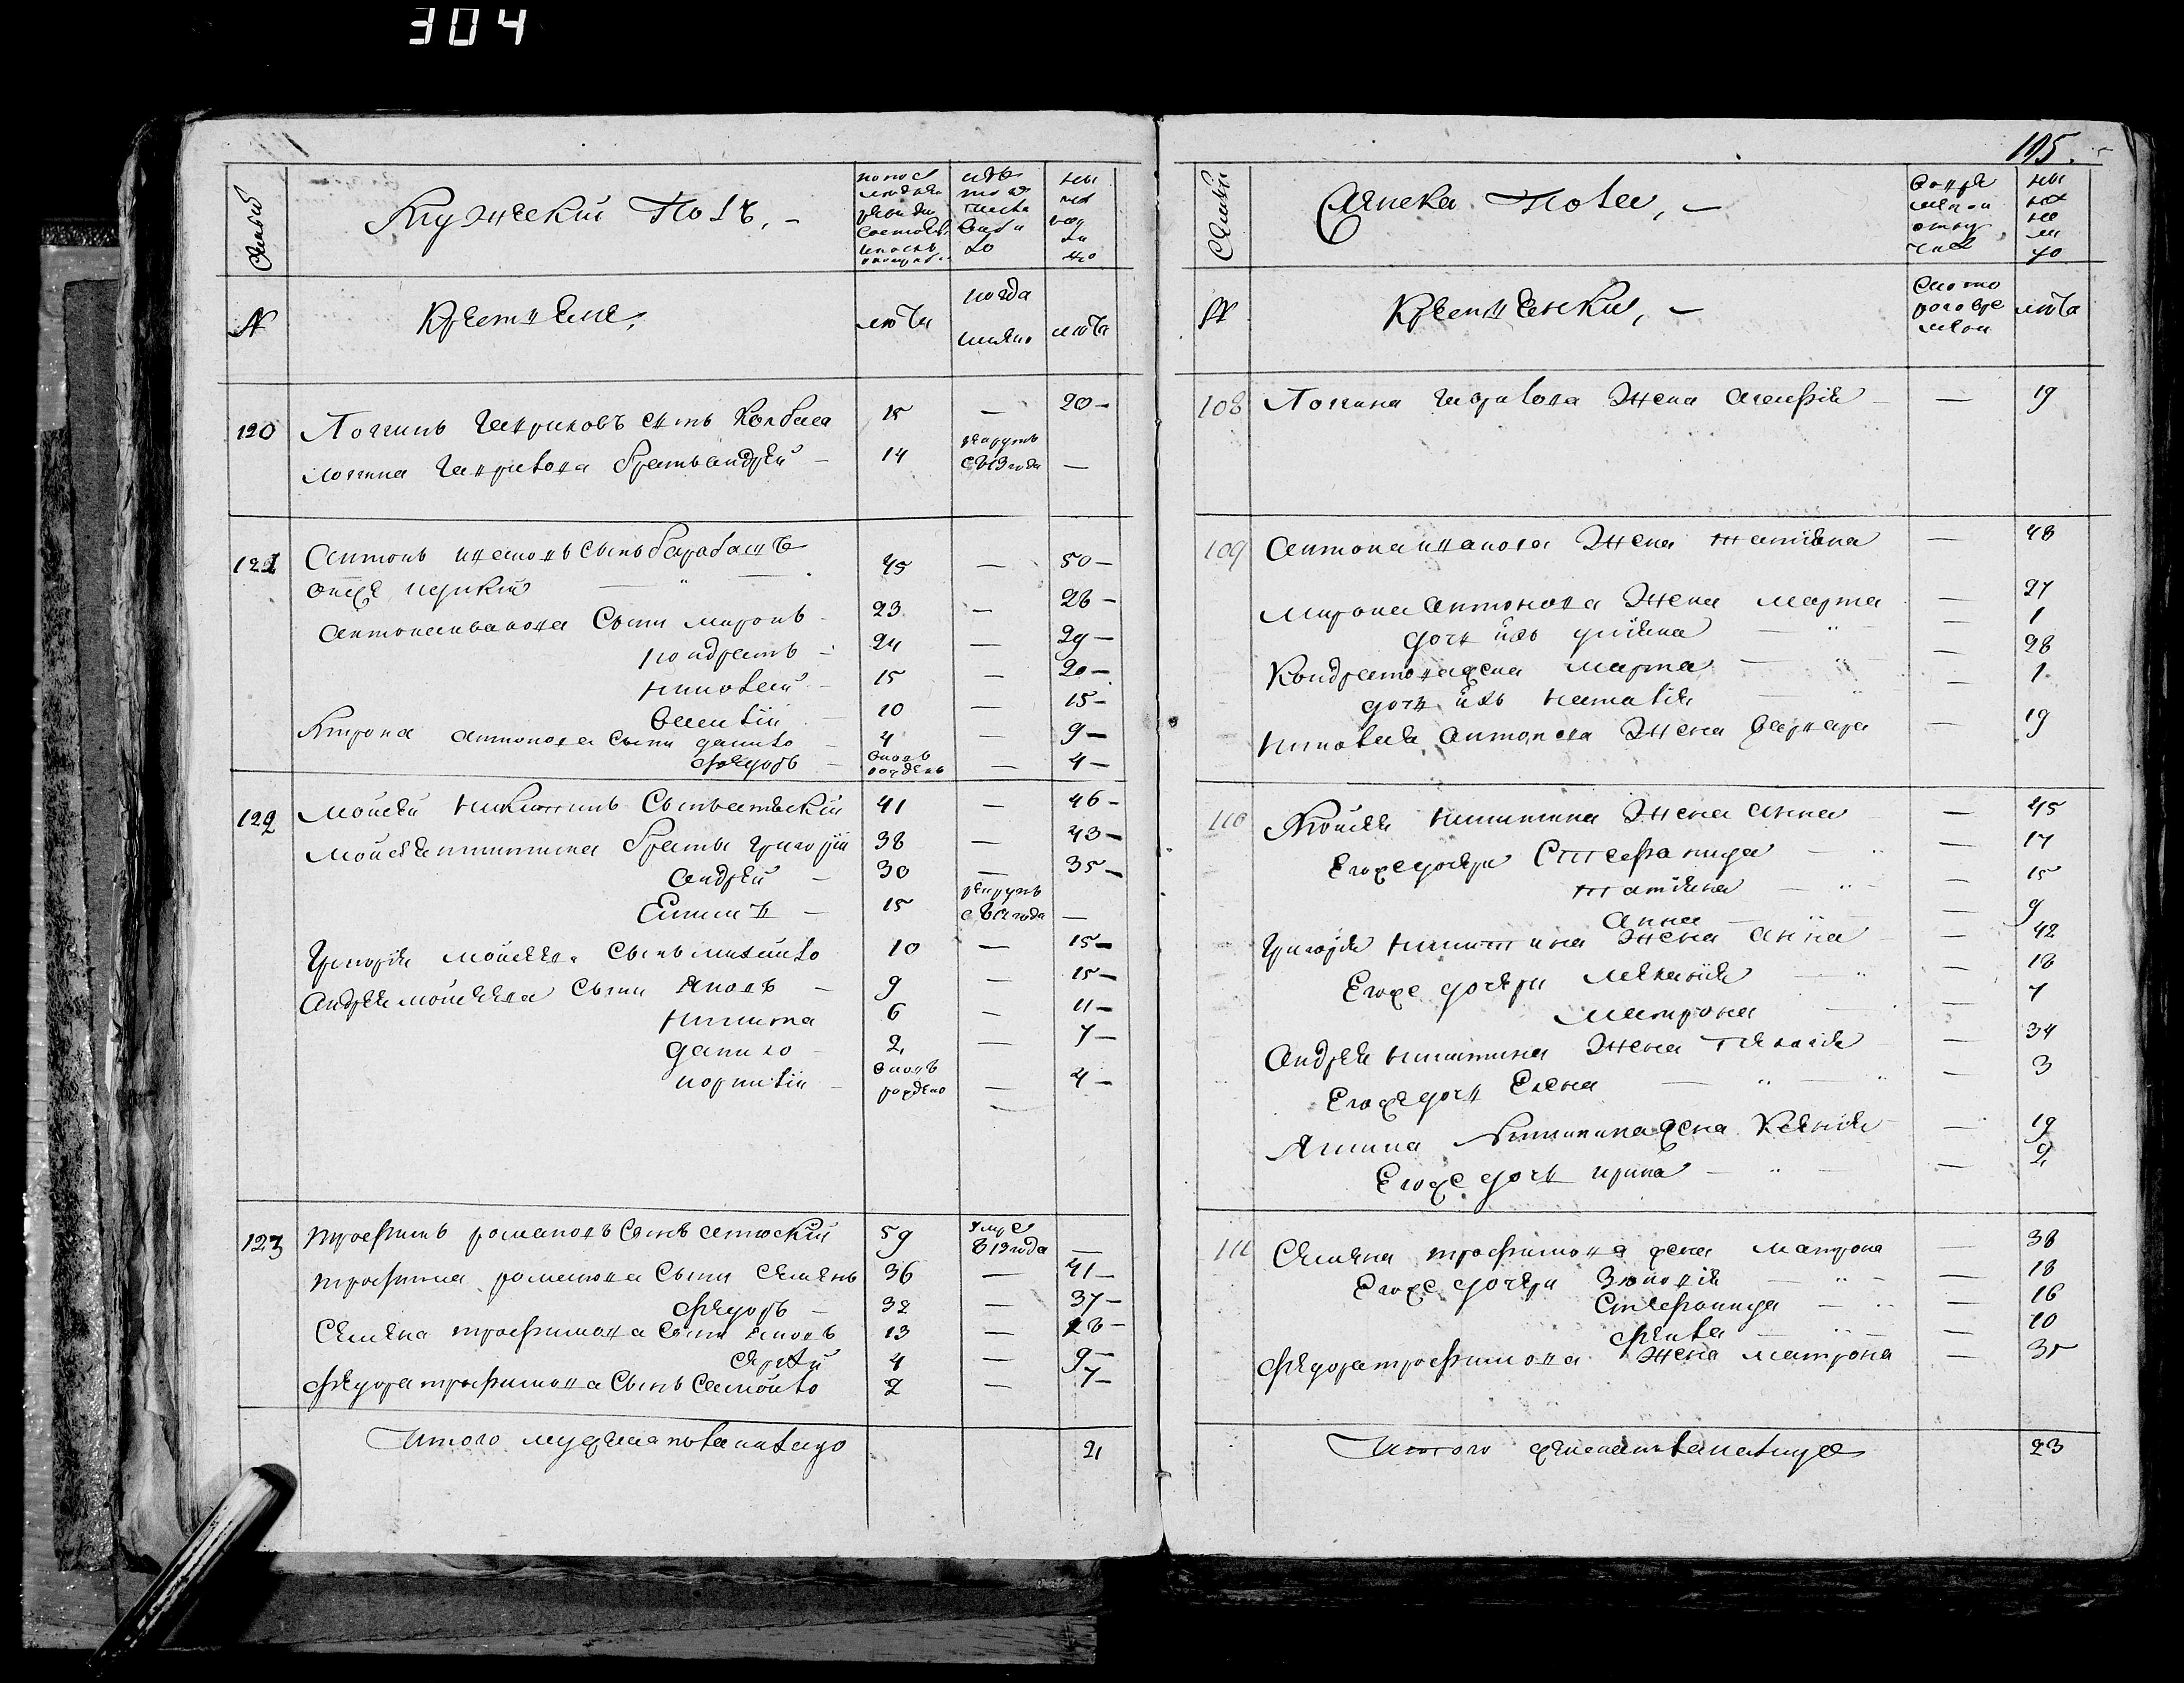 304
Семьи
Мужеский Полъ, –
по последней ревизии состояло и после оной прибыло
изъ того числа выбыло
ныне на лицо
№
Крестьяне,
лета
когда именно
лета
120
Логинъ Гавриловъ сынъ Колбаса 15 — 20 –
Логина Гаврилова братъ андрей – 14 рекрутъ с 813 года —
121
Антонъ ивановъ сынъ барабашъ 45 — 50 –
Антона иванова Сыны миронъ 23 — 28 –
кондратъ 24 — 29 –
никольай 15 — 20 –
василий 10 — 15 –
Мирона антонова Сыны данило – 4 — 9 –
федоръ – вновь рожденъ — 4 –
122
Мойсей никитинъ Сынъ 41 — 46 –
Мойсея никитина браты григорий 38 — 43 –
Андрей – 30 — 35 –
15 рекрутъ с 812 года —
Григория мойсеева Сынъ михайло 10 — 15 –
Андрея мойсеева Сыны яковъ – 9 — 15 –
никита 6 — 11 –
данило 2 — 7 –
вновь рождено — 4 –
123
трофимъ романовъ Сынъ 59 умре 813 года —
трофима романова Сыны Семенъ 36 — 41 –
федоръ – 32 — 37 –
Семена трофимова Сыны яковъ 13 — 18 –
Сергей 4 — 9 –
федора трофимова Сынъ Самойло 2 — 7 –
Итого мужеска пола налицо 21
105.
Семьи
Женска пола, –
во временной отлучке
ныне на лицо
№
Крестьянки, –
с которого времени
лета
108
Логина гаврилова жена — 19
109
Антона иванова жена татияна — 48
Мирона антонова жена марта — 27
дочь ихъ улияна — 1
Кондратова жена марта — 28
дочь ихъ наталия — 1
николая антонова жена варвара — 19
110
Мойсея никитина жена анна — 45
Его же дочери Стефанида — 17
татияна — 15
анна — 9
григория никитина жена анна — 42
Его же дочери мелания — 18
матрона — 7
Андрея никитина жена — 34
Его же дочь Елена — 3
никитина жена Ксения — 19
Его же дочь ирина — 2
111
Семена трофимова жена матрона — 38
Его же дочери — 18
Стефанида — 16
фекла — 10
федора трофимова жена матрона — 35
Итого женска пола налицо 23